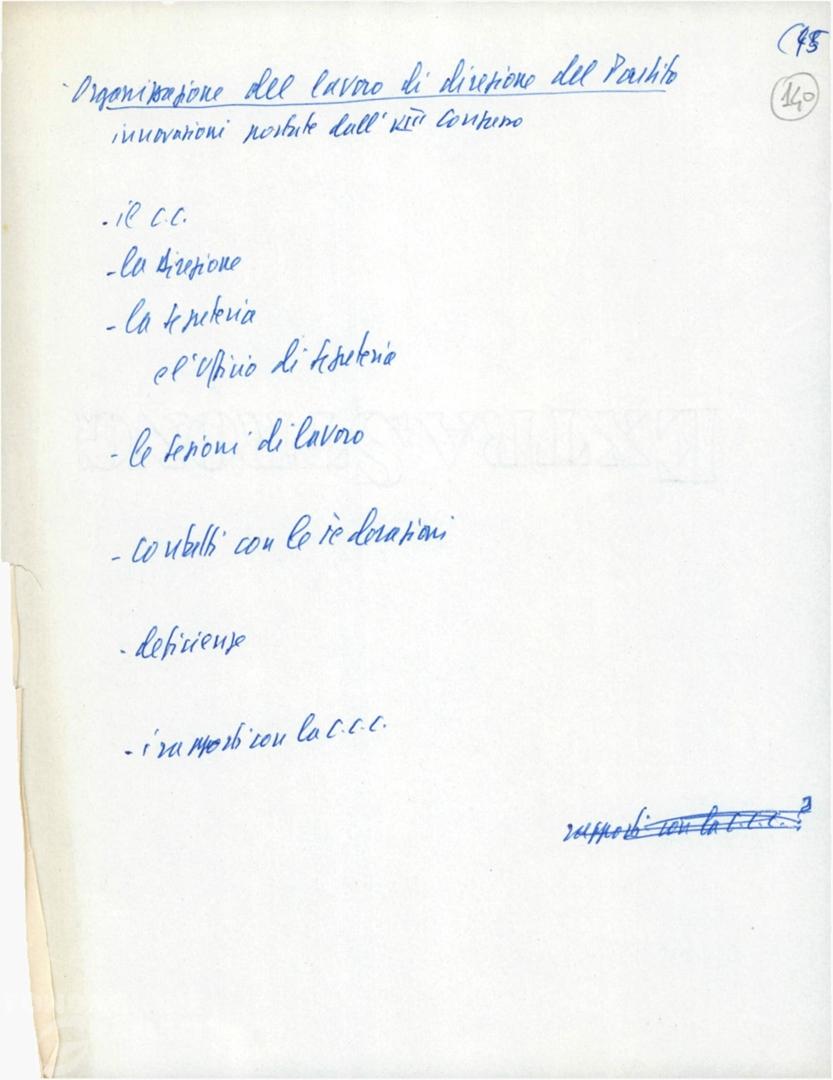 (45
140
Organizzazione del lavoro di direzione del Partito
innovazioni portate dall'VIII Congresso
- il C.C.
- la Direzione
- la Segreteria
e l'Ufficio di Segreteria
- le sezioni di lavoro
- contatti con le Federazioni
- deficienze
- i rapporti con la C.C.C.
rapporti con la C.C.C.